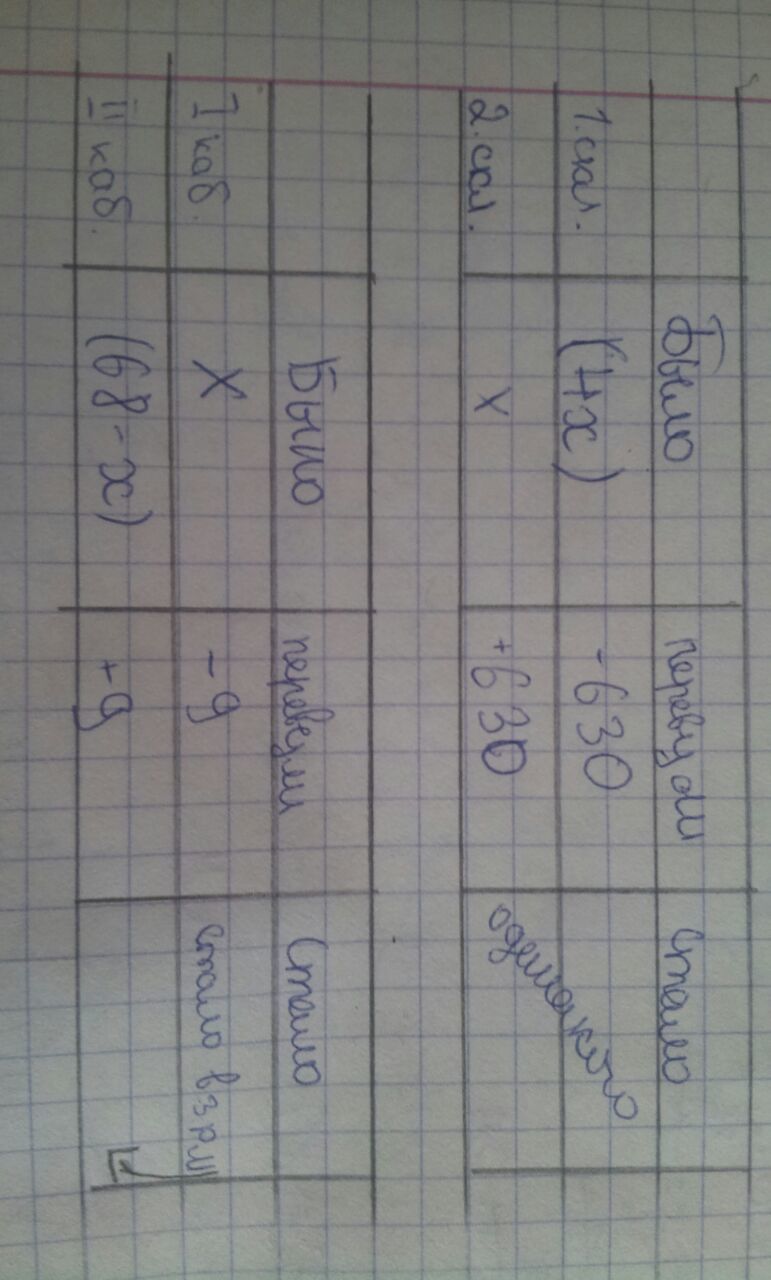 Было стало
1.скл. (4x) -630
2.скл. x +630 одинакого
Было перевезли Стало
I каб. X -9 стало в 3 р м
II каб. (68-x) +9